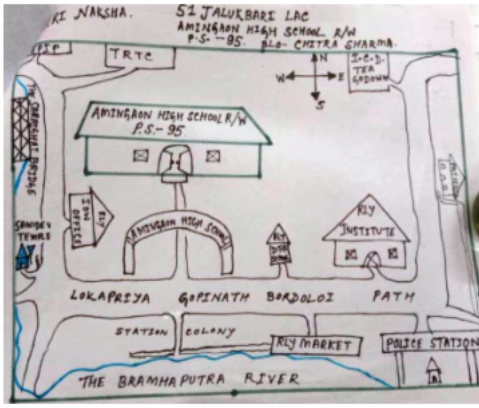 RI NAKSHA.
51 JALUKBARI LAC
AMINGAON HIGH SCHOOL R/W
P.S.-95. BLO- CHITRA SHARMA.
P.I.P
TRTC
N
W E
S
I.C.D.
TEA
GODOWN
AMINGAON HIGH SCHOOL R/W
P.S.-95
THE SARAIGHAT BRIDGE
RLY
IOW
OFFICE
AMINGAON HIGH SCHOOL
RLY
RLY
INSTITUTE
SANIDEV
TEMPLE
LOKAPRIYA GOPINATH BORDOLOI PATH
STATION COLONY
RLY MARKET
POLICE STATION
THE BRAMHAPUTRA RIVER